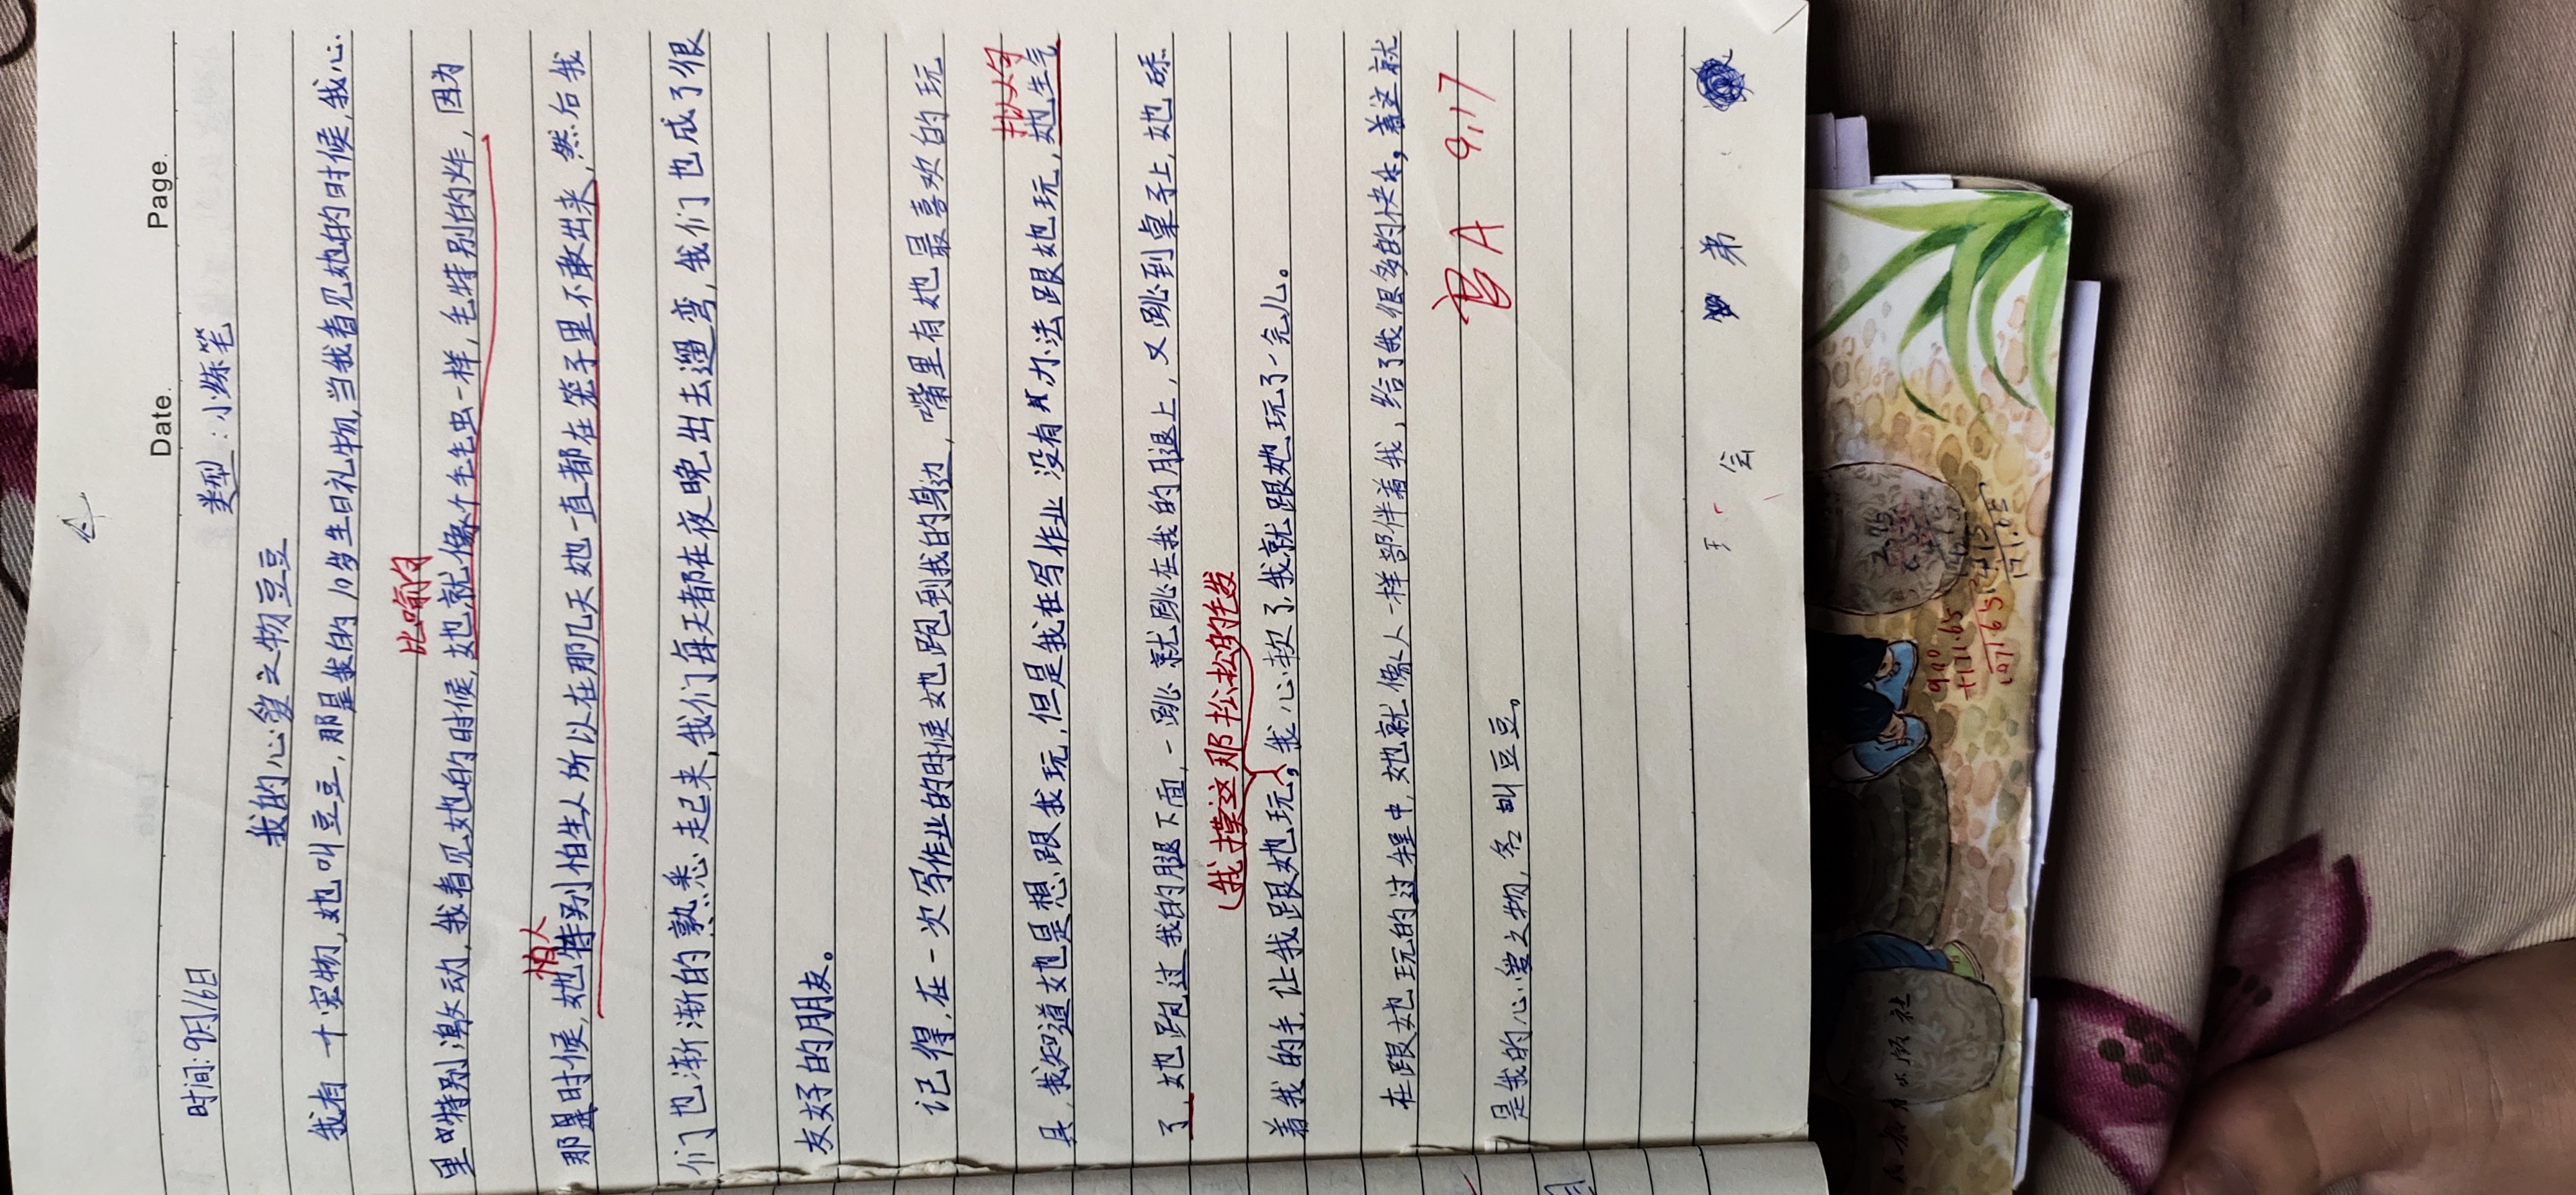 Date.
Page.
时间:9月16日
类型:小练笔
我的心爱之物豆豆
我有一个宠物,她叫豆豆,那是我的10岁生日礼物,当我看见她的时候,我心
比喻句
里特别激动,我看见她的时候,她就像个毛毛虫一样,毛特别的炸,因为
怕人
那是时候,她特别怕生人所以在那几天她一直都在笼子里不敢出来,然后我
们也渐渐的熟悉起来,我们每天都在夜晚出去遛弯,我们也成了很
友好的朋友。
记得,在一次写作业的时候她跑到我的身边,嘴里有她最喜欢的玩
拟人句
具,我知道她是想跟我玩,但是我在写作业没有办法跟她玩,她生气
了,她跑过我的腿下面,一跳就跳在我的腿上,又跳到桌子上,她舔
(我摸这那松松的毛发
着我的手,让我跟她玩,我心软了,我就跟她玩了一完儿。
在跟她玩的过程中,她就像人一样部伴着我,给了我很多的快乐,着这就
是我的心爱之物,名叫豆豆。
A 9.17
弟
会